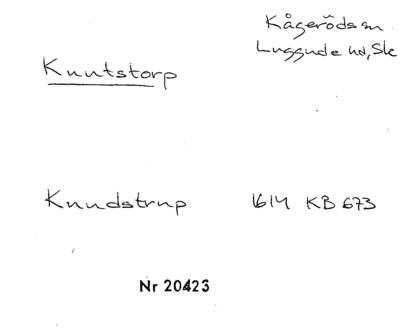 Kågerödsn
Luggude hd, Sk
Knutstorp
Knudstrup 1614 KB 673
Nr 20423